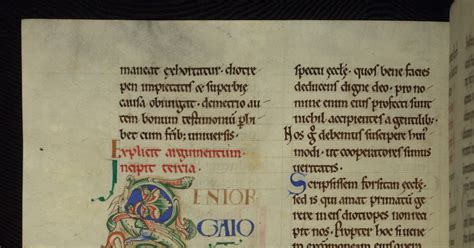 maneat exhortatur. diotre
pen impietatis & superbię
causa obiurgat. demetrio au
tem bonum testimoniũ phi
bet cum frib; uniuersis.
Explicit argumentum
Incipit tercia.
SENIOR
GAIO
spectu eccłę. quos bene facies
deducens digne deo. pro no
mine enim eius profecti sunt
nichil accipientes a gentilib;
Nos g̊ debemus suscipere hui9
modi. ut cooperatores simus
ueritatis.
Scripsissem forsitan eccłę
sed is qui amat primatũ ge
rere in eis diotrepes non reci
pit nos. Propter hoc si uene